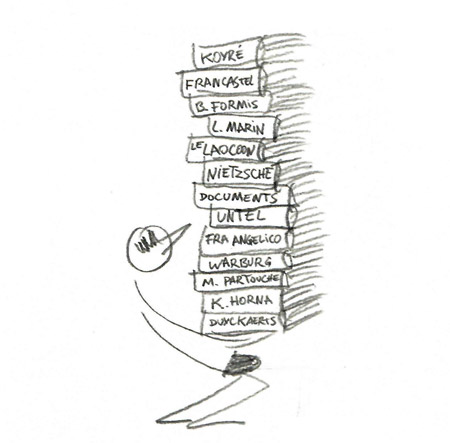 KOYRÉ
FRANCASTEL
B. FORMIS
L. MARIN
LE LAOCOON
NIETZSCHE
DOCUMENTS
UNTEL
FRA ANGELICO
WARBURG
M. PARTOUCHE
K. HORNA
DUYCKAERTS